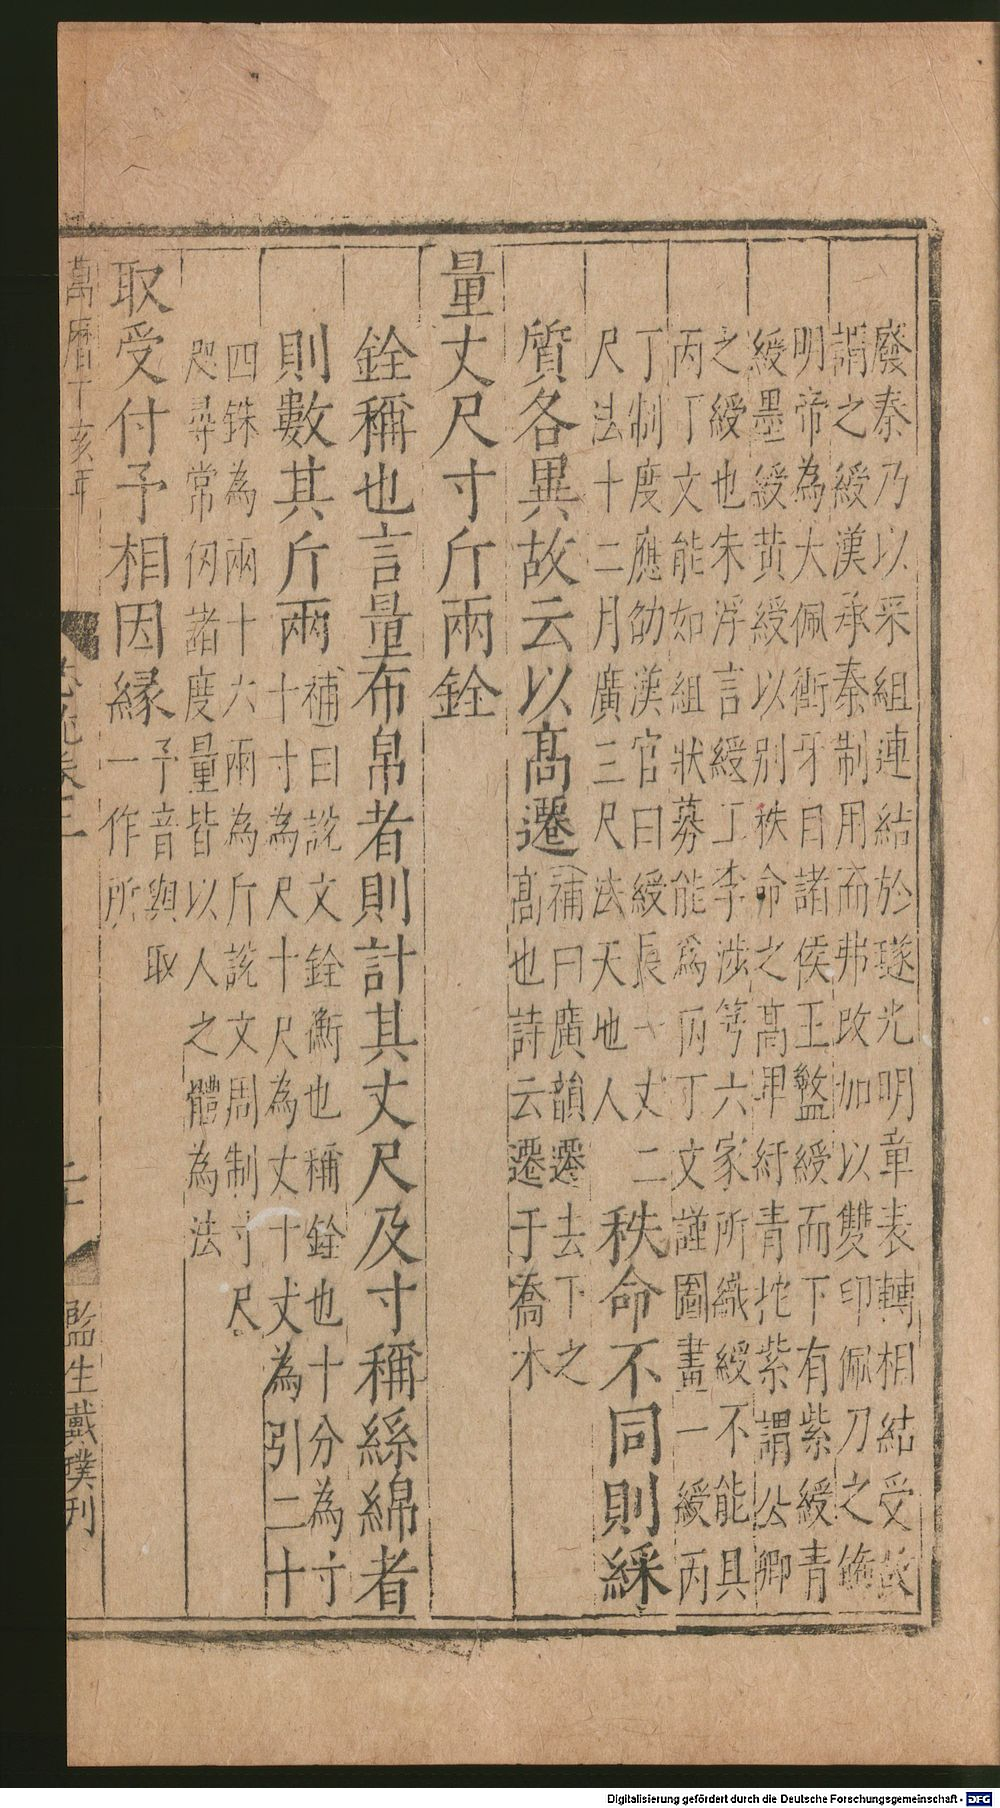 廢秦乃以采組連結於璲光明章表轉相結受故
謂之綬漢承秦制用而弗改加以雙印佩刀之飾
明帝為大佩衝牙目諸侯王盭綬而下有紫綬青
綬墨綬黃綬以別秩命之髙卑紆青拕紫謂公卿
之綬也朱浮言綬工李涉等六家所織綬不能具
丙丁文能如組狀募能為丙丁文謹圖畫一綬丙
丁制度應劭漢官曰綬長一丈二
尺法十二月廣三尺法天地人
秩命不同則綵
質各異故云以髙遷
補曰廣韻遷去下之
髙也詩云遷于喬木
量丈尺寸斤兩銓
銓稱也言量布帛者則計其丈尺及寸稱絲綿者
則數其斤兩
補曰說文銓衡也稱銓也十分為寸
十寸為尺十尺為丈十丈為引二十
四銖為兩十六兩為斤說文周制寸尺
咫尋常仞諸度量皆以人之體為法
取受付予相因緣
予音與取
一作所
萬曆丁亥年
急就卷三
二十
監生戴璞刊
Digitalisierung gefördert durch die Deutsche Forschungsgemeinschaft - DFG